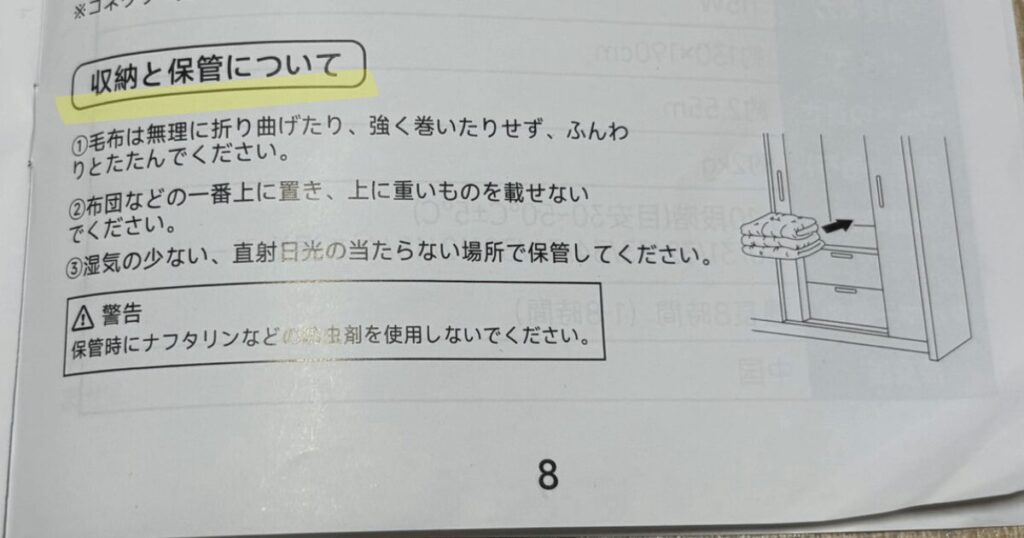 ※コネクタ
収納と保管について
①毛布は無理に折り曲げたり、強く巻いたりせず、ふんわ
りとたたんでください。
②布団などの一番上に置き、上に重いものを載せない
でください。
③湿気の少ない、直射日光の当たらない場所で保管してください。
⚠ 警告
保管時にナフタリンなどの防虫剤を使用しないでください。
8